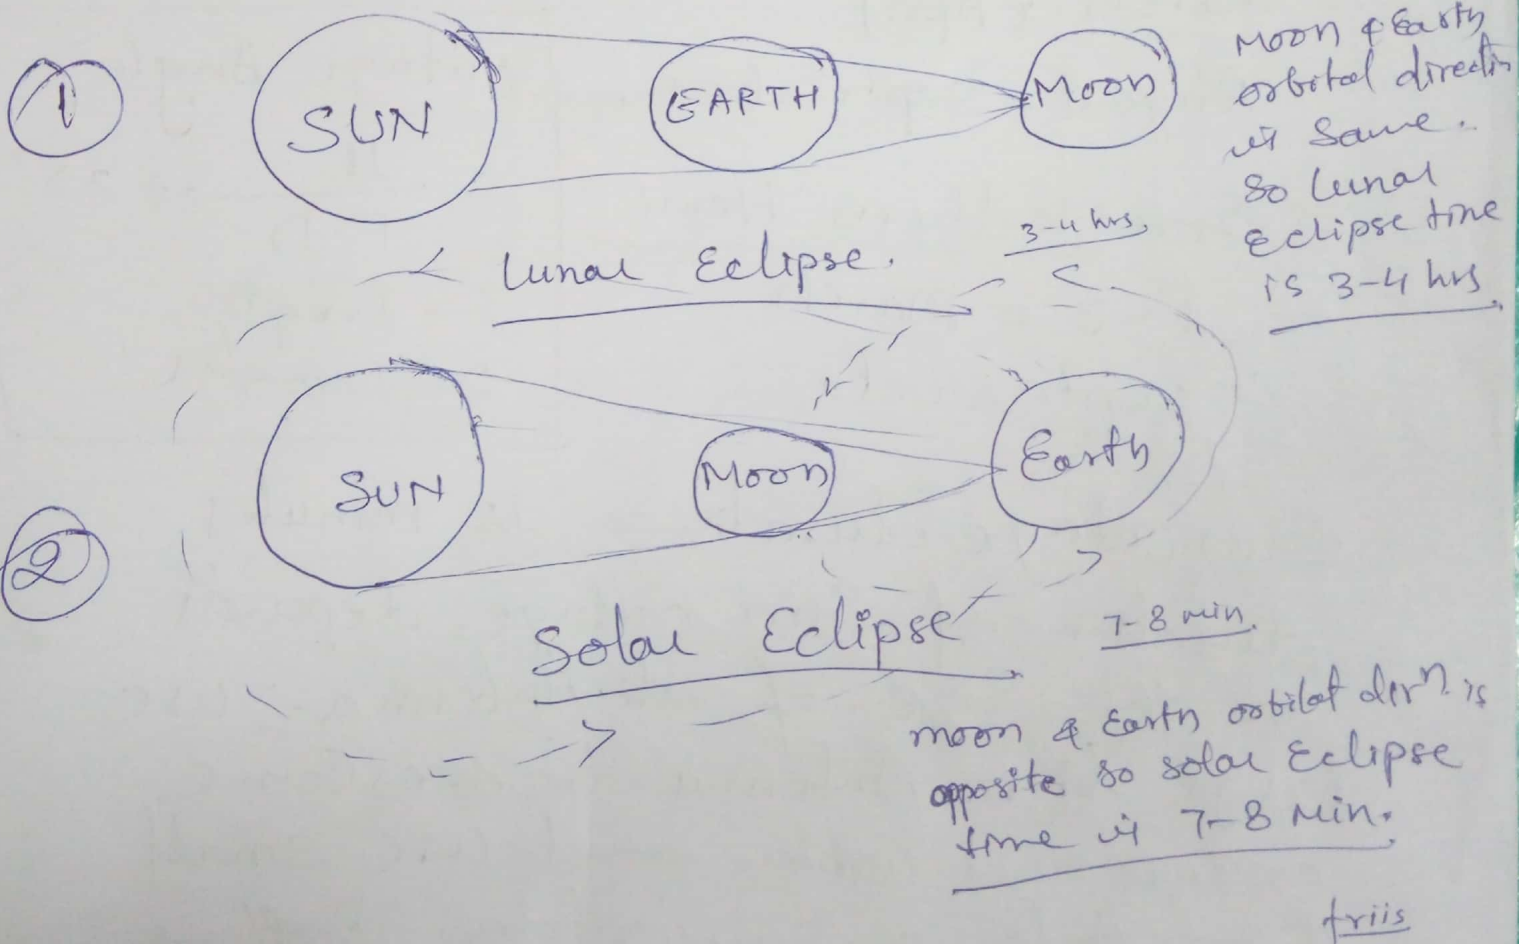 1
SUN
EARTH
Moon
Moon & Earth
orbital direction
is Same.
So lunar
Eclipse time
is 3-4 hrs.
3-4 hrs.
Lunar Eclipse.
2
SUN
Moon
Earth
Solar Eclipse
7-8 min.
moon & Earth orbital dirn. is
opposite so solar Eclipse
time is 7-8 Min.
friis